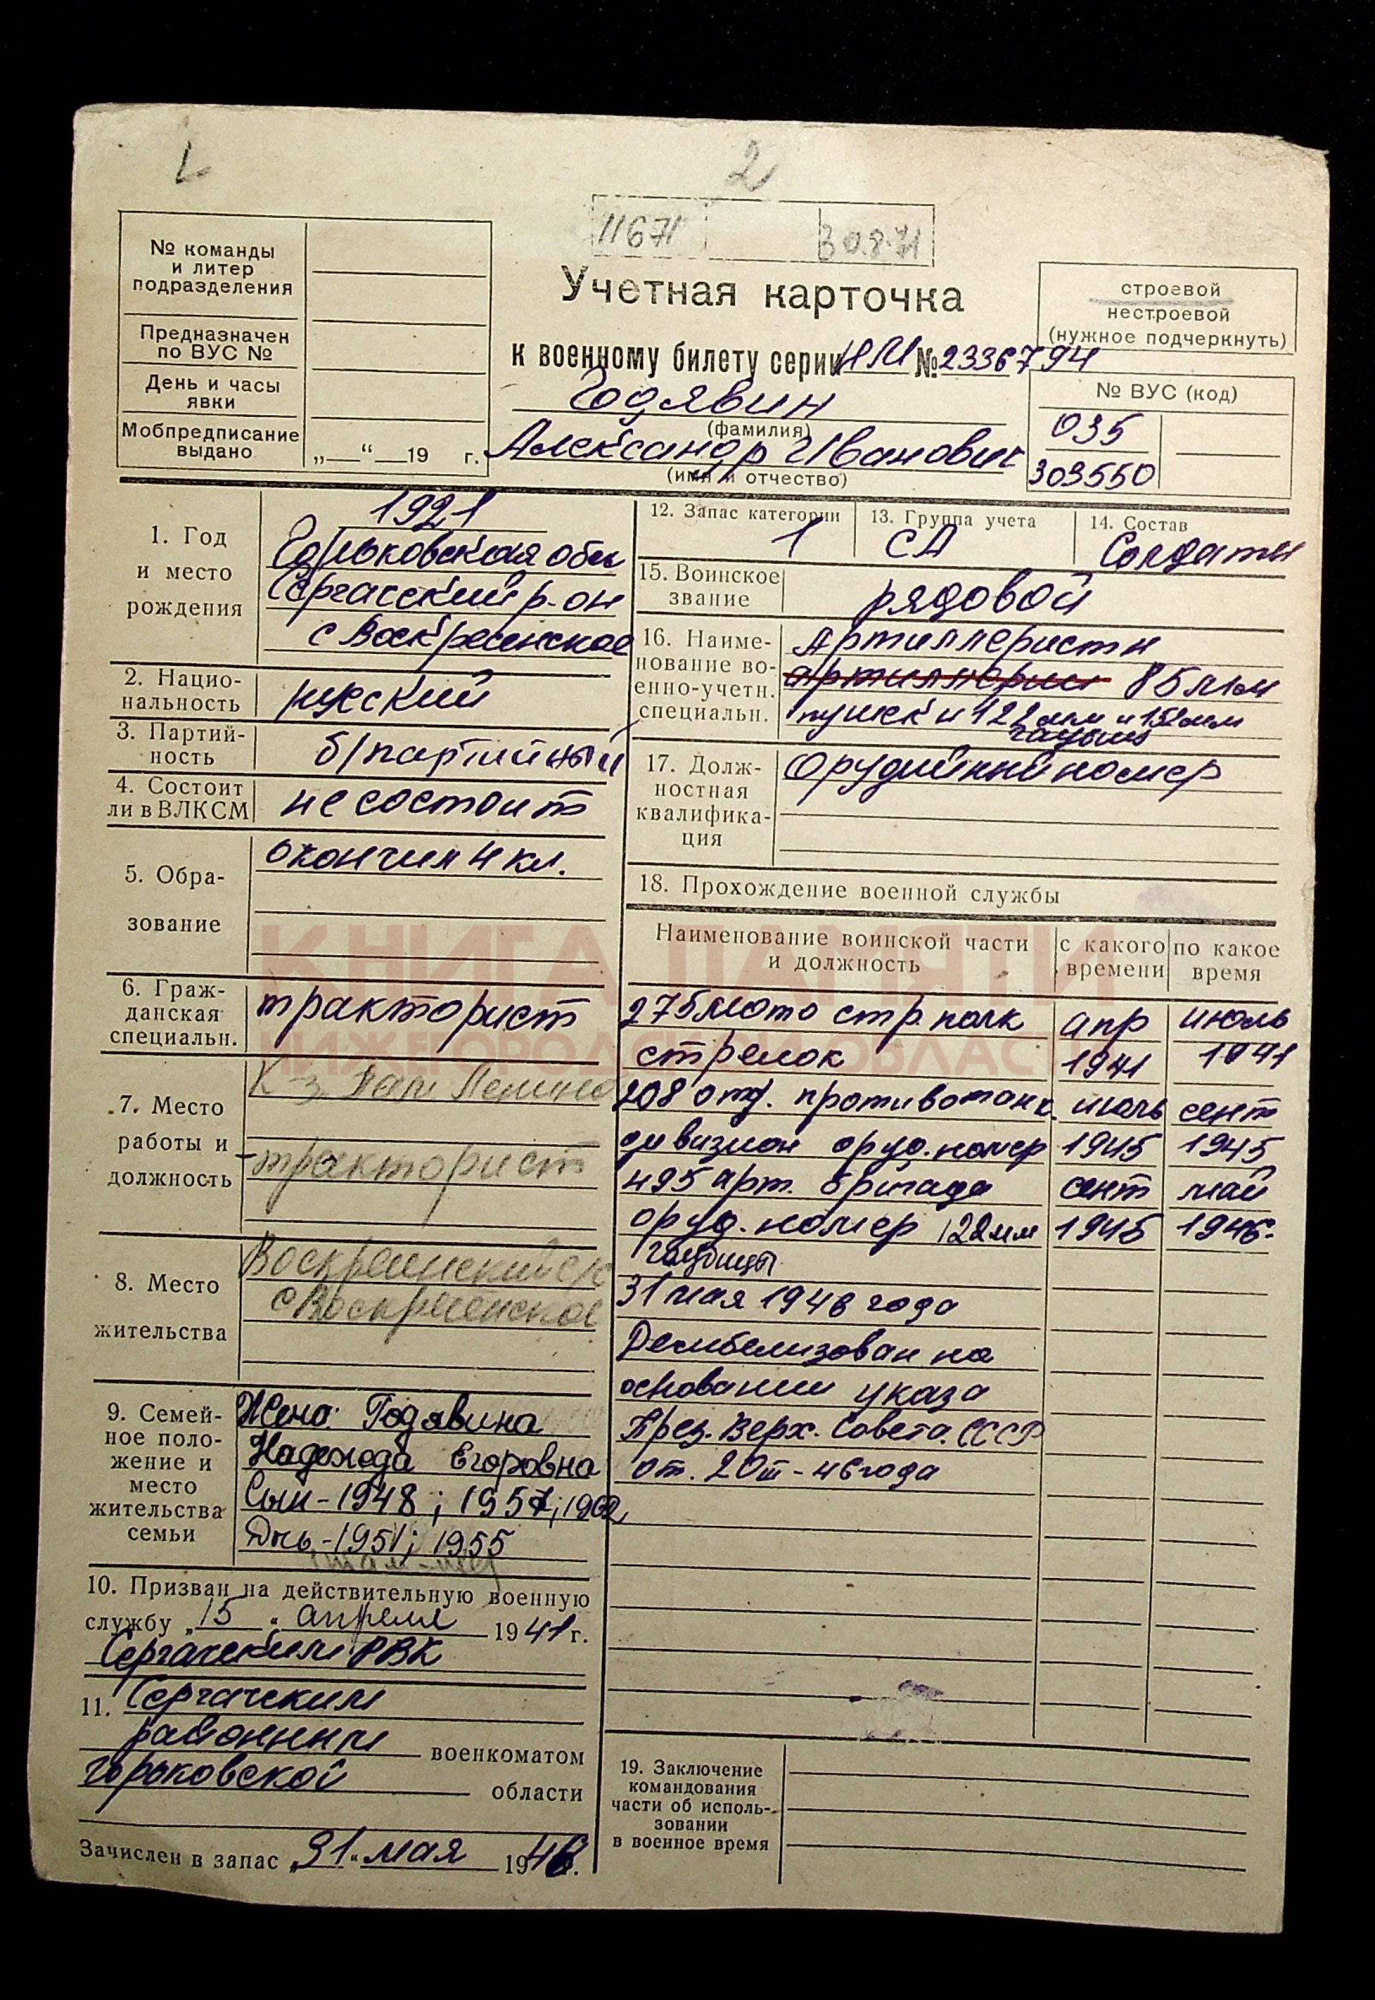 2
11671
30.8.71
№ команды
и литер
подразделения
Предназначен
по ВУС №
День и часы
явки
Мобпредписание
выдано
„ “ 19 г.
Учетная карточка
к военному билету серии НМ № 2336794
Годявин
(фамилия)
Александр Иванович
(имя и отчество)
строевой
нестроевой
(нужное подчеркнуть)
№ ВУС (код)
035
303550
1. Год
и место
рождения
1921
Горьковская обл
Сергачский р-он
с Воскресенское
2. Нацио-
нальность
русский
3. Партий-
ность
б/партийный
4. Состоит
ли в ВЛКСМ
не состоит
5. Обра-
зование
окончил 4 кл.
6. Граж-
данская
специальн.
тракторист
7. Место
работы и
должность
К-з Пам Ленина
тракторист
8. Место
жительства
Воскресенский с/с
с Воскресенское
9. Семей-
ное поло-
жение и
место
жительства
семьи
Жена: Годявина
Надежда Егоровна
Сын-1948; 1957; 1962
Дчь-1951; 1955
10. Призван на действительную военную
службу „15“ апреля 1941 г.
Сергачским РВК
11. Сергачским
районным военкоматом
Горьковской области
Зачислен в запас „31“ мая 1946г.
12. Запас категории
1
13. Группа учета
СА
14. Состав
Солдаты
15. Воинское
звание
рядовой
16. Наиме-
нование во-
енно-учетн.
специальн.
Артиллеристы
артиллерии 85 мм
пушек и 122 мм и 152 мм
гаубиц
17. Долж-
ностная
квалифика-
ция
Орудийный номер
18. Прохождение военной службы
Наименование воинской части
и должность
с какого
времени
по какое
время
275 мото стр. полк апр июль
стрелок 1941 1941
208 отд. противотанк. июль сент
дивизион оруд. номер 1945 1945
495 арт. бригада сент май
оруд. номер 122 мм 1945 1946.
гаубицы
31 мая 1946 года
Демобелизован на
основании указа
През. Верх. Совета. СССР
от. 20 III-46 года
19. Заключение
командования
части об исполь-
зовании
в военное время
КНИГА ПАМЯТИ
НИЖЕГОРОДСКОЙ ОБЛАСТИ